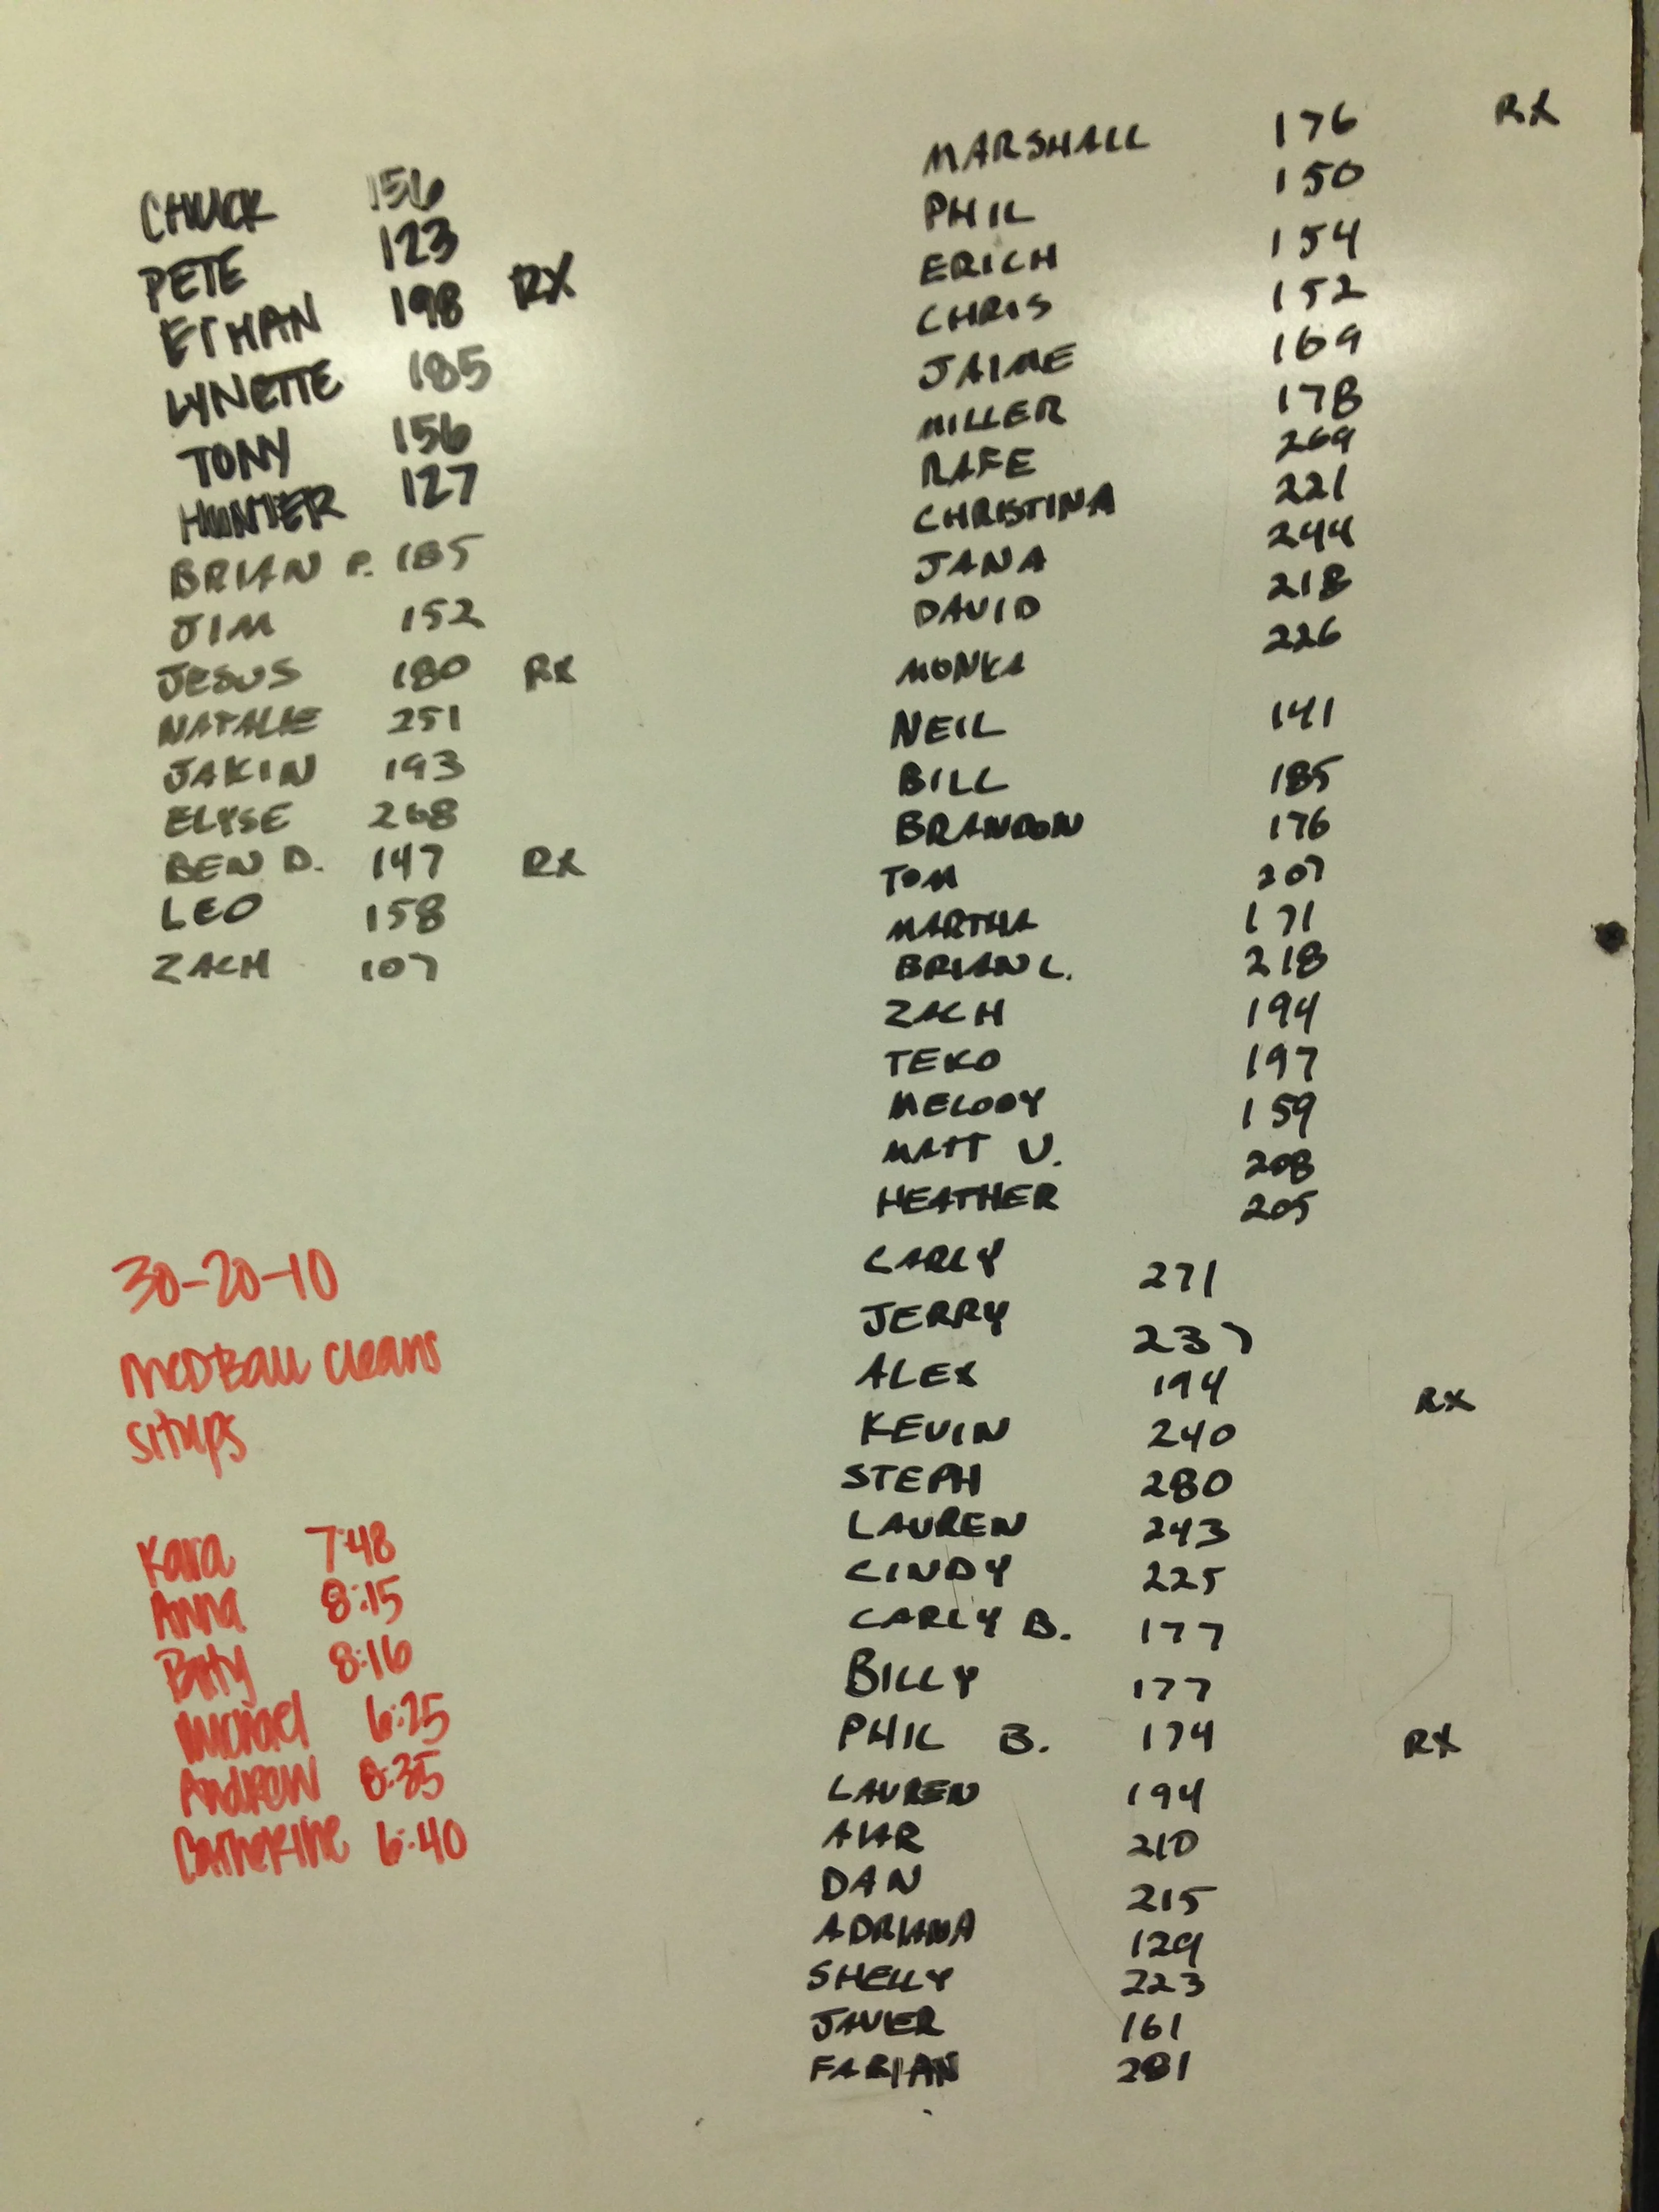 CHUCK 156
PETE 123
ETHAN 198 RX
LYNETTE 185
TONY 156
HUNTER 127
BRIAN P. 185
JIM 152
JESUS 180 RX
NATALIE 251
JAKIN 193
ELYSE 268
BEN D. 147 RX
LEO 158
ZACH 107
30-20-10
MEDBALL CLEANS
SITUPS
Kara 7:48
Anna 8:15
Betty 8:16
Michael 6:25
Andrew 8:35
Catherine 6:40
MARSHALL 176 RX
PHIL 150
ERICH 154
CHRIS 152
JAIME 169
MILLER 178
RAFE 269
CHRISTINA 221
JANA 244
DAVID 218
MONKA 226
NEIL 141
BILL 185
BRANDON 176
TOM 207
MARTHA 171
BRIAN L. 218
ZACH 194
TEKO 197
MELODY 159
MATT V. 208
HEATHER 205
CARLY 271
JERRY 237
ALEX 194 RX
KEVIN 240
STEPH 280
LAUREN 243
CINDY 225
CARLY B. 177
BILLY 177
PHIL B. 174 RX
LAUREN 194
210
DAN 215
ADRIANA 129
SHELLY 223
JAVIER 161
FABIAN 281